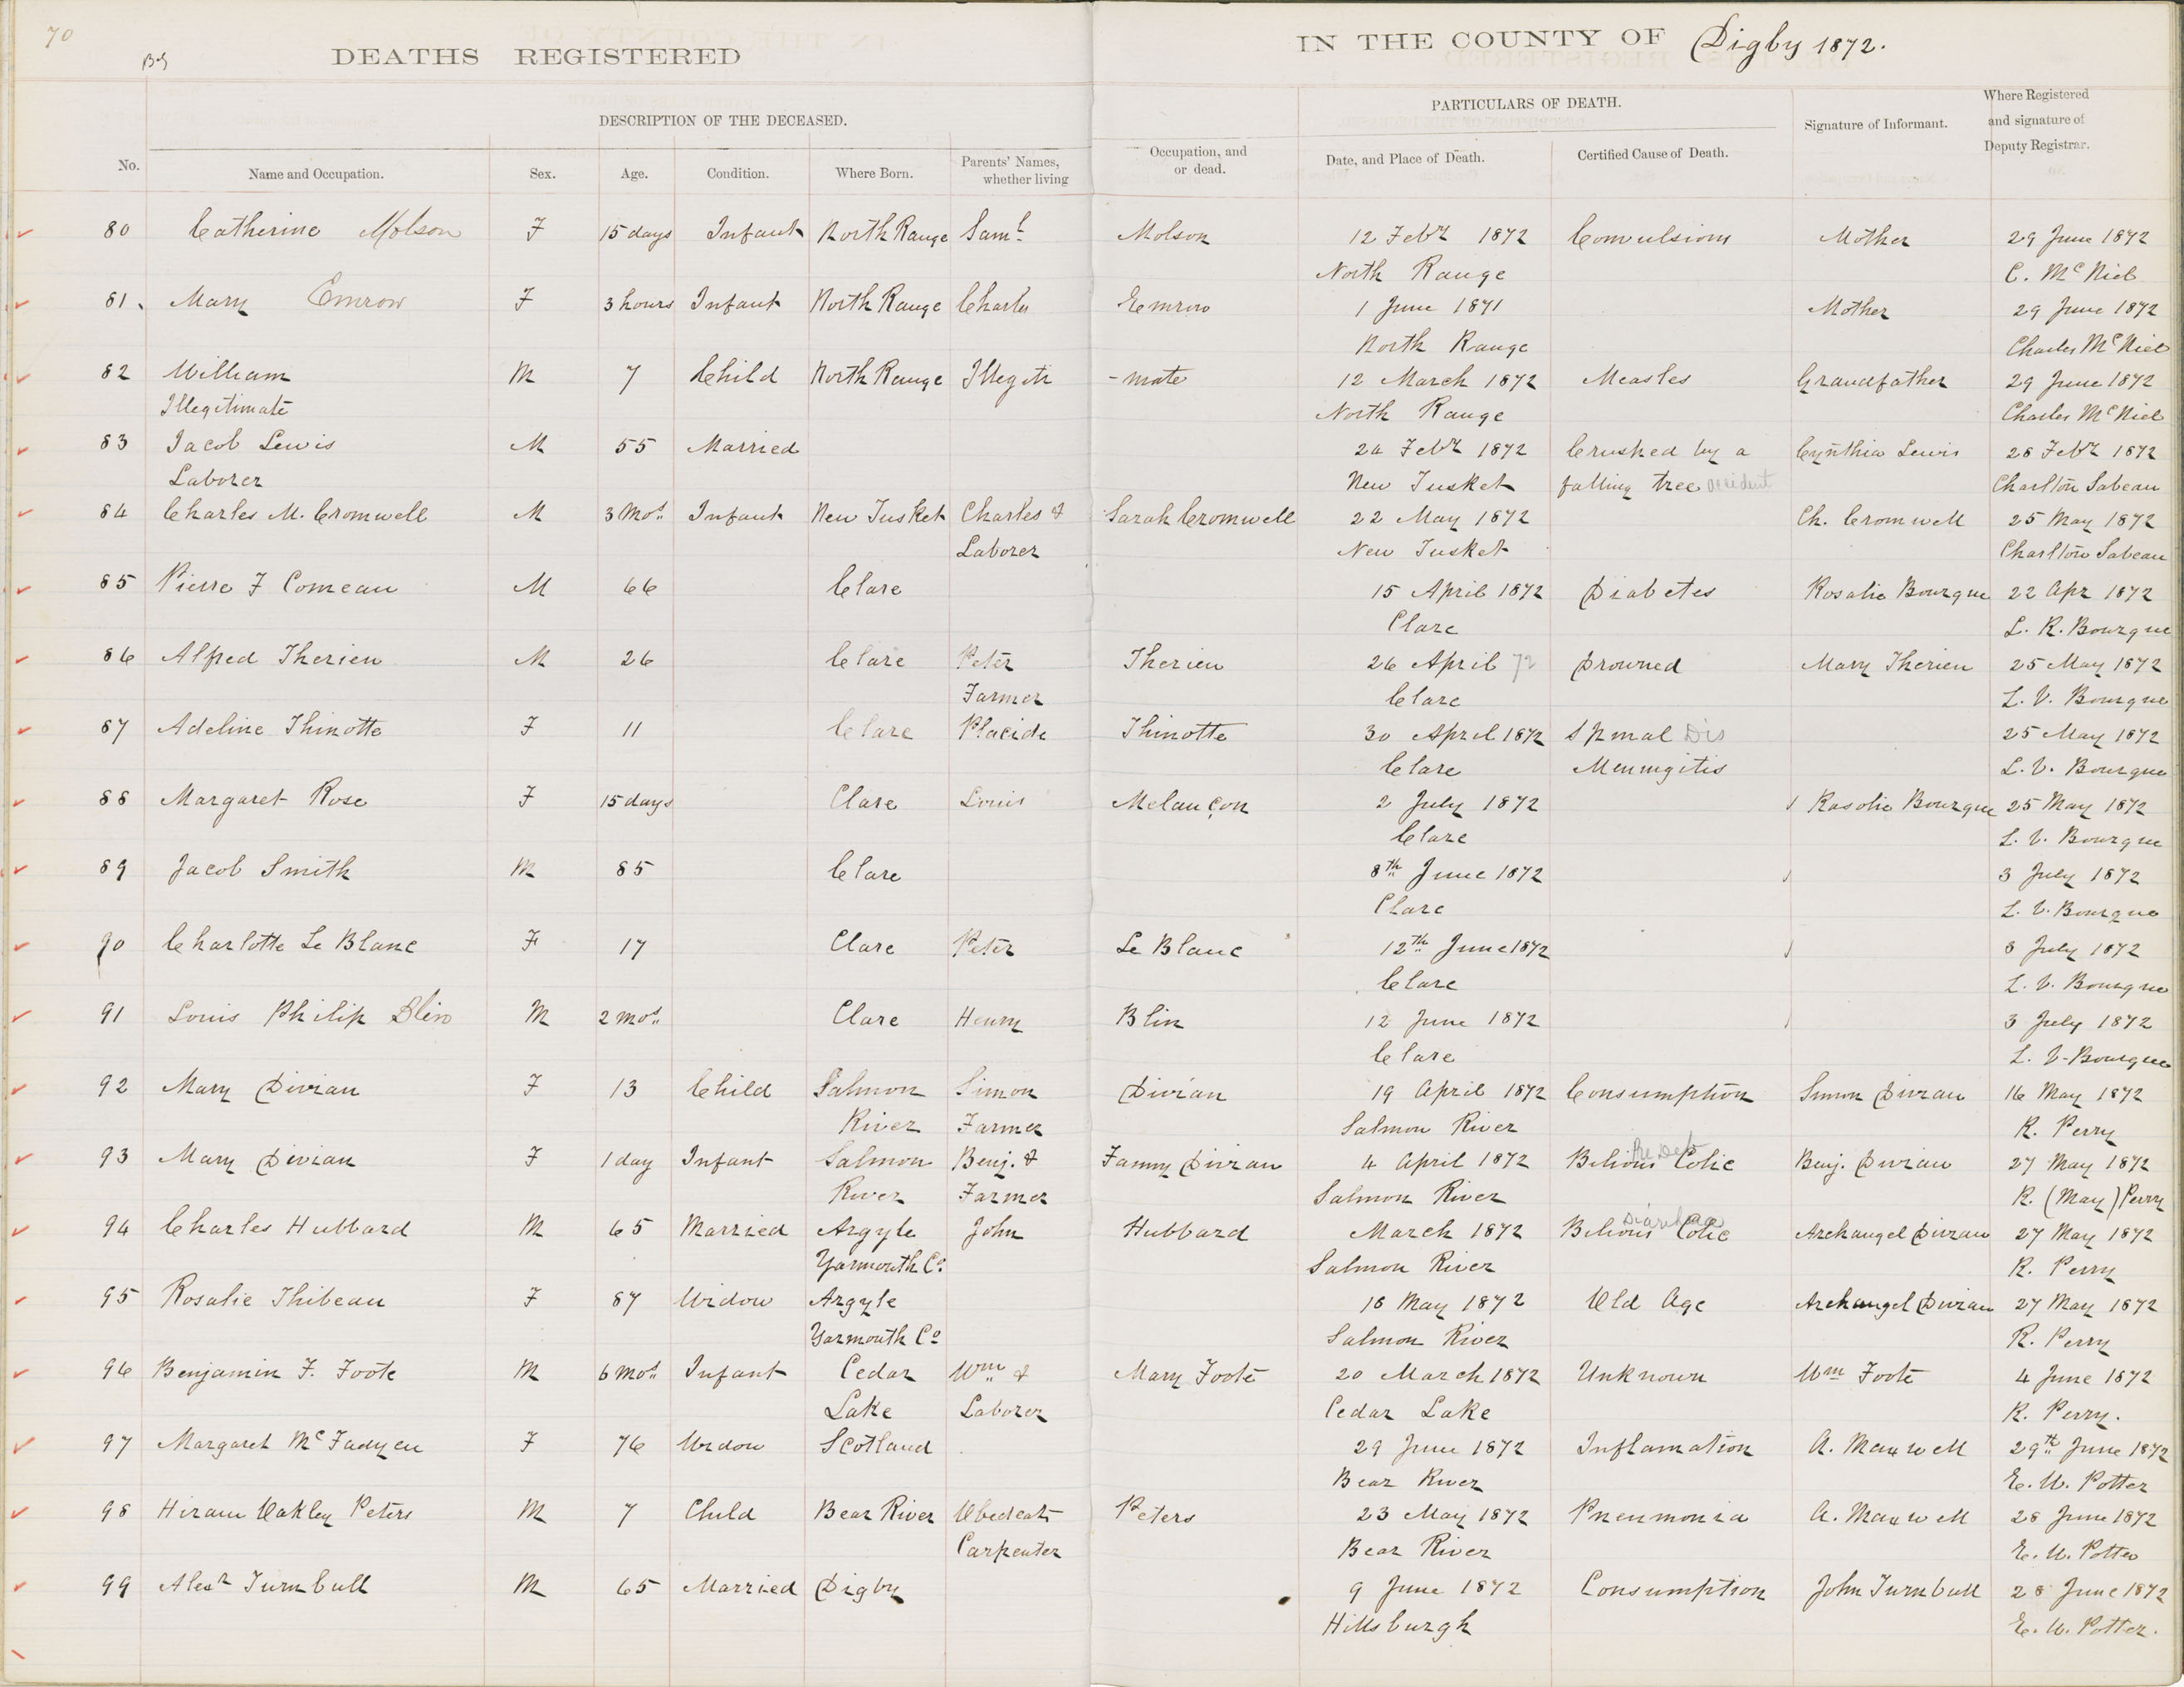 70
DEATHS REGISTERED IN THE COUNTY OF Digby 1872.
DESCRIPTION OF THE DECEASED. PARTICULARS OF DEATH. Signature of Informant. Where Registered and signature of Deputy Registrar.
No. Name and Occupation. Sex. Age. Condition. Where Born. Parents' Names, whether living Occupation, and or dead. Date, and Place of Death. Certified Cause of Death.
80 Catherine Molson F 15 days Infant North Range Saml. Molson 12 Febry 1872 Convulsions Mother 29 June 1872
North Range C. McNiel
81 Mary Emrow F 3 hours Infant North Range Charles Emrow 1 June 1871 Mother 29 June 1872
North Range Charles McNiel
82 William M 7 Child North Range Illegiti -mate 12 March 1872 Measles Grandfather 29 June 1872
Illegitimate North Range Charles McNiel
83 Jacob Lewis M 55 Married Febry 1872 Crushed by a Cynthia Lewis 28 Febry 1872
Laborer New Tusket falling tree accident Charlton Sabean
84 Charles M. Cromwell M 3 Mos. Infant New Tusket Charles & Sarah Cromwell 22 May 1872 Ch. Cromwell 25 May 1872
Laborer New Tusket Charlton Sabean
85 Pierre F Comeau M 66 Clare 15 April 1872 Diabetes Rosalie Bourque 22 Apr 1872
Clare L. R. Bourque
86 Alfred Therien M 26 Clare Peter Therien 26 April 72 Drowned Mary Therien 25 May 1872
Farmer Clare L. V. Bourque
87 Adeline Thinotte F 11 Clare Placide Thinotte 30 April 1872 Spinal Dis 25 May 1872
Clare Meningitis L. V. Bourque
88 Margaret Rose F 15 days Clare Louis Melançon 2 July 1872 Rosolie Bourque 25 May 1872
Clare L. V. Bourque
89 Jacob Smith M 85 Clare 8th June 1872 3 July 1872
Clare L. V. Bourque
90 Charlotte Le Blanc F 17 Clare Peter Le Blanc 12th June 1872 8 July 1872
Clare L. V. Bourque
91 Louis Philip Blin M 2 mos. Clare Henry Blin 12 June 1872 3 July 1872
Clare L. V. Bourque
92 Mary Divian F 13 Child Salmon Simon Divian 19 April 1872 Consumption Simon Divian 16 May 1872
River Farmer Salmon River R. Perry
93 Mary Divian F 1 day Infant Salmon Benj. & Fanny Divian 4 April 1872 Bilious Colic Benj. Divian 27 May 1872
River Farmer Salmon River R. (May) Perry
94 Charles Hubbard M 65 Married Argyle John Hubbard March 1872 Bilious Colic Diarrhoea Archangel Divian 27 May 1872
Yarmouth Co. Salmon River R. Perry
95 Rosalie Thibeau F 87 Widow Argyle 18 May 1872 Old Age Archangel Divian 27 May 1872
Yarmouth Co Salmon River R. Perry
96 Benjamin F. Foote M 6 mos. Infant Cedar Wm & Mary Foote 20 March 1872 Unknown Wm Foote 4 June 1872
Lake Laborer Cedar Lake R. Perry.
97 Margaret McFadyen F 76 Widow Scotland 29 June 1872 Inflamation A. Maxwell 29th June 1872
Bear River E. W. Potter
98 Hiram Oakley Peters M 7 Child Bear River Peters 23 May 1872 Pneumonia A. Maxwell 28 June 1872
Carpenter Bear River E. W. Potter
99 Alexr Turnbull M 65 Married Digby 9 June 1872 Consumption John Turnbull 28 June 1872
Hillsburgh E. W. Potter.